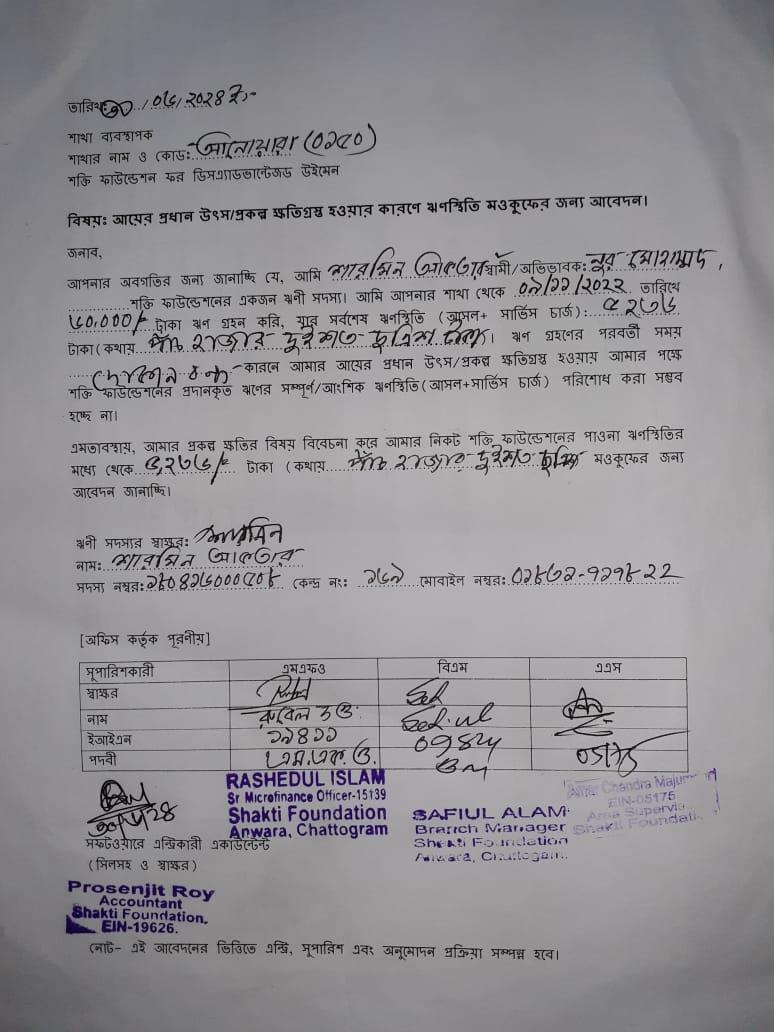 তারিখঃ ৩০/০৬/২০২৪ ইং-
শাখা ব্যবস্থাপক
শাখার নাম ও কোডঃ আনোয়ারা (০১৫০)
শক্তি ফাউন্ডেশন ফর ডিসএ্যাডভান্টেজড উইমেন
বিষয়ঃ আয়ের প্রধান উৎস/প্রকল্প ক্ষতিগ্রস্থ হওয়ার কারণে ঋণস্থিতি মওকুফের জন্য আবেদন।
জনাব,
আপনার অবগতির জন্য জানাচ্ছি যে, আমি শারমিন আক্তার স্বামী/অভিভাবকঃ নুর মোহাম্মদ,
শক্তি ফাউন্ডেশনের একজন ঋনী সদস্য। আমি আপনার শাখা থেকে ০৯/১১/২০২২ তারিখে
৬০,০০০/ টাকা ঋণ গ্রহন করি, যার সর্বশেষ ঋণস্থিতি (আসল+ সার্ভিস চার্জ): ৫২৩৬
টাকা (কথায় পাঁচ হাজার দুইশত ছত্রিশ টাকা। ঋণ গ্রহণের পরবর্তী সময়
কারনে আমার আয়ের প্রধান উৎস/প্রকল্প ক্ষতিগ্রস্থ হওয়ায় আমার পক্ষে
শক্তি ফাউন্ডেশনের প্রদানকৃত ঋণের সম্পূর্ণ/আংশিক ঋণস্থিতি (আসল+সার্ভিস চার্জ) পরিশোধ করা সম্ভব
হচ্ছে না।
এমতাবস্থায়, আমার প্রকল্প ক্ষতির বিষয় বিবেচনা করে আমার নিকট শক্তি ফাউন্ডেশনের পাওনা ঋণস্থিতির
মধ্যে থেকে ৫,২৩৬/= টাকা (কথায় পাঁচ হাজার দুইশত ছত্রিশ মওকুফের জন্য
আবেদন জানাচ্ছি।
ঋনী সদস্যর স্বাক্ষরঃ শারমিন
নামঃ শারমিন আক্তার
সদস্য নম্বরঃ ১৮০৪১৬০০০৫০৮ কেন্দ্র নংঃ ১৬৯ মোবাইল নম্বরঃ ০১৮৩১-৭১৭৮২২
[অফিস কর্তৃক পূরণীয়]
সুপারিশকারী এমএফও বিএম এএস
স্বাক্ষর
নাম রুবেল
ইআইএন ১৯৪১১ 05175
পদবী এম.এফ.ও. BM
RASHEDUL ISLAM
Sr Microfinance Officer-15139
Shakti Foundation
Anwara, Chattogram
SAFIUL ALAM
Branch Manager
Shakti Foundation
Anwara, Chattogam.
Chandra Majum
EIN-05175
Area Supervis
Shakti Foundati
সফটওয়্যারে এন্ট্রিকারী একাউন্টেন্ট
(সিলসহ ও স্বাক্ষর)
Prosenjit Roy
Accountant
Shakti Foundation,
EIN-19626.
নোট- এই আবেদনের ভিত্তিতে এন্ট্রি, সুপারিশ এবং অনুমোদন প্রক্রিয়া সম্পন্ন হবে।